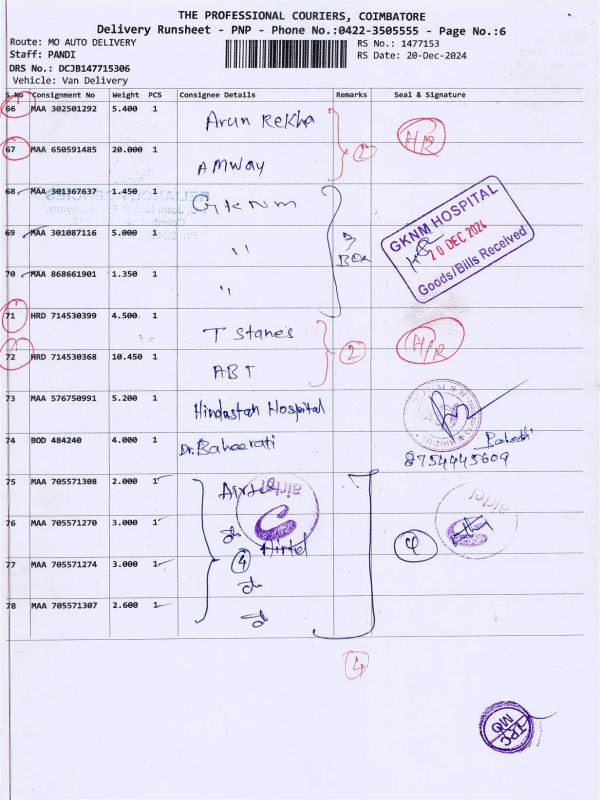 THE PROFESSIONAL COURIERS, COIMBATORE
Delivery Runsheet - PNP - Phone No.:0422-3505555 - Page No.:6
Route: MO AUTO DELIVERY
RS No.: 1477153
Staff: PANDI
RS Date: 20-Dec-2024
DRS No.: DCJB147715306
Vehicle: Van Delivery
S No Consignment No Weight PCS Consignee Details Remarks Seal & Signature
66 MAA 302501292 5.400 1 Arun Rekha H/R
67 MAA 650591485 20.000 1 AMWAY 2
68 MAA 301367637 1.450 1 GKNM
GKNM HOSPITAL
20 DEC 2024
Goods/Bills Received
69 MAA 301087116 5.000 1 " 3 Box
70 MAA 868661901 1.350 1 "
71 HRD 714530399 4.500 1 T Stanes H/R
72 HRD 714530368 10.450 1 ABT 2
73 MAA 576750991 5.200 1 Hindustan Hospital
74 BOD 484240 4.000 1 Dr. Baheerati
8754445609
75 MAA 705571308 2.000 1 Airtel airtel airtel
76 MAA 705571270 3.000 1 do Airtel 4
77 MAA 705571274 3.000 1 4 do
78 MAA 705571307 2.600 1 do
4
TPC
MO